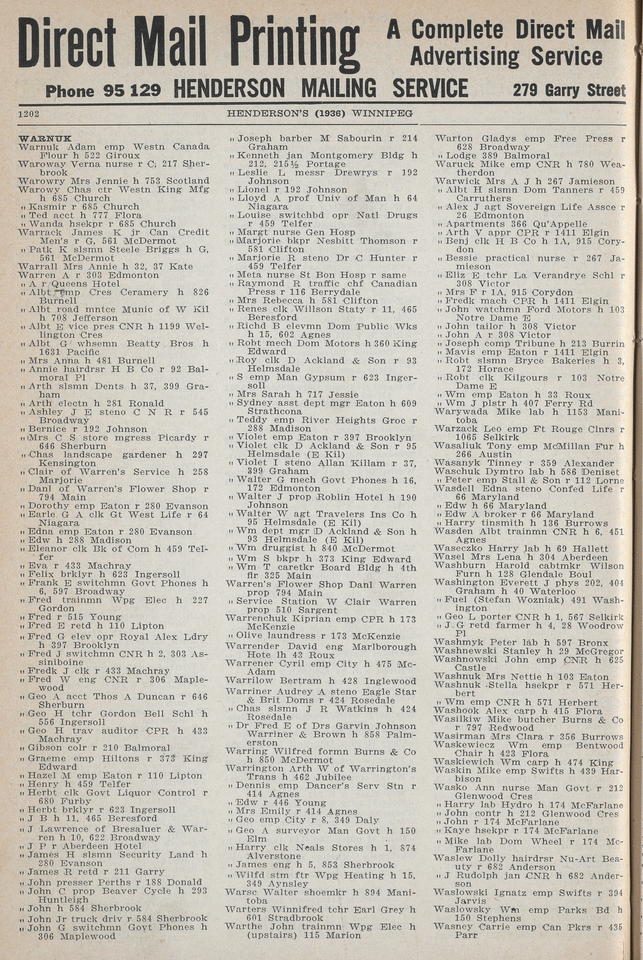 Direct Mail Printing
A Complete Direct Mail
Advertising Service
Phone 95 129 HENDERSON MAILING SERVICE 279 Garry Street
1202 HENDERSON'S (1936) WINNIPEG
WARNUK
Warnuk Adam emp Westn Canada
Flour h 522 Giroux
Waroway Verna nurse r C, 217 Sher-
brook
Warowry Mrs Jennie h 753 Scotland
Warowy Chas ctr Westn King Mfg
h 685 Church
" Kasmir r 685 Church
" Ted acct h 777 Flora
" Wanda hsekpr r 685 Church
Warrack James K jr Can Credit
Men's r G, 561 McDermot
" Patk K slsmn Steele Briggs h G,
561 McDermot
Warrall Mrs Annie h 32, 37 Kate
Warren A r 303 Edmonton
" A r Queens Hotel
" Albt emp Cres Ceramery h 826
Burnell
" Albt road mntce Munic of W Kil
h 708 Jefferson
" Albt E vice pres CNR h 1199 Wel-
lington Cres
" Albt G whsemn Beatty Bros h
1631 Pacific
" Mrs Anna h 481 Burnell
" Annie hairdrsr H B Co r 92 Bal-
moral Pl
" Arth slsmn Dents h 37, 399 Gra-
ham
" Arth electn h 281 Ronald
" Ashley J E steno C N R r 545
Broadway
" Bernice r 192 Johnson
" Mrs C S store mgress Picardy r
646 Sherburn
" Chas landscape gardener h 297
Kensington
" Clair of Warren's Service h 258
Marjorie
" Danl of Warren's Flower Shop r
794 Main
" Dorothy emp Eaton r 280 Evanson
" Earle G A clk Gt West Life r 64
Niagara
" Edna emp Eaton r 280 Evanson
" Edw h 288 Madison
" Eleanor clk Bk of Com h 459 Tel-
fer
" Eva r 433 Machray
" Felix brklyr h 623 Ingersoll
" Frank E switchmn Govt Phones h
6, 597 Broadway
" Fred trainmn Wpg Elec h 227
Gordon
" Fred r 515 Young
" Fred E retd h 110 Lipton
" Fred G elev opr Royal Alex Ldry
h 397 Brooklyn
" Fred J switchmn CNR h 2, 303 As-
siniboine
" Fredk J clk r 433 Machray
" Fred W eng CNR r 306 Maple-
wood
" Geo A acct Thos A Duncan r 646
Sherburn
" Geo H tchr Gordon Bell Schl h
556 Ingersoll
" Geo H trav auditor CPR h 433
Machray
" Gibson colr r 210 Balmoral
" Graeme emp Hiltons r 373 King
Edward
" Hazel M emp Eaton r 110 Lipton
" Henry h 459 Telfer
" Herbt clk Govt Liquor Control r
680 Furby
" Herbt brklyr r 623 Ingersoll
" J B h 11, 465 Beresford
" J Lawrence of Bresaluer & War-
ren h 10, 622 Broadway
" J P r Aberdeen Hotel
" James H slsmn Security Land h
280 Evanson
" James R retd r 211 Garry
" John presser Perths r 188 Donald
" John C prop Beaver Cycle h 293
Huntleigh
" John h 584 Sherbrook
" John Jr truck driv r 584 Sherbrook
" John G switchmn Govt Phones h
306 Maplewood
" Joseph barber M Sabourin r 214
Graham
" Kenneth jan Montgomery Bldg h
212, 215½ Portage
" Leslie L messr Drewrys r 192
Johnson
" Lionel r 192 Johnson
" Lloyd A prof Univ of Man h 64
Niagara
" Louise switchbd opr Natl Drugs
r 459 Telfer
" Margt nurse Gen Hosp
" Marjorie bkpr Nesbitt Thomson r
581 Clifton
" Marjorie R steno Dr C Hunter r
459 Telfer
" Meta nurse St Bon Hosp r same
" Raymond R traffic chf Canadian
Press r 116 Berrydale
" Mrs Rebecca h 581 Clifton
" Renes clk Willson Staty r 11, 465
Beresford
" Richd B elevmn Dom Public Wks
h 15, 602 Agnes
" Robt mech Dom Motors h 360 King
Edward
" Roy clk D Ackland & Son r 93
Helmsdale
" S emp Man Gypsum r 623 Inger-
soll
" Mrs Sarah h 717 Jessie
" Sydney asst dept mgr Eaton h 609
Strathcona
" Teddy emp River Heights Groc r
288 Madison
" Violet emp Eaton r 397 Brooklyn
" Violet clk D Ackland & Son r 95
Helmsdale (E Kil)
" Violet I steno Allan Killam r 37,
399 Graham
" Walter G mech Govt Phones h 16,
172 Edmonton
" Walter J prop Roblin Hotel h 190
Johnson
" Walter W agt Travelers Ins Co h
95 Helmsdale (E Kil)
" Wm dept mgr D Ackland & Son h
93 Helmsdale (E Kil)
" Wm druggist h 840 McDermot
" Wm S bkpr h 373 King Edward
" Wm T caretkr Board Bldg h 4th
flr 325 Main
Warren's Flower Shop Danl Warren
prop 794 Main
" Service Station W Clair Warren
prop 510 Sargent
Warrenchuk Kiprian emp CPR h 173
McKenzie
" Olive laundress r 173 McKenzie
Warrender David eng Marlborough
Hote lh 43 Roux
Warrener Cyril emp City h 475 Mc-
Adam
Warrilow Bertram h 428 Inglewood
Warriner Audrey A steno Eagle Star
& Brit Doms r 424 Rosedale
" Chas slsmn J R Watkins h 424
Rosedale
" Dr Fred E of Drs Garvin Johnson
Warriner & Brown h 858 Palm-
erston
Warring Wilfred formn Burns & Co
h 850 McDermot
Warrington Arth W of Warrington's
Trans h 462 Jubilee
" Dennis emp Dancer's Serv Stn r
414 Agnes
" Edw r 446 Young
" Mrs Emily r 414 Agnes
" Geo emp City r 8, 349 Daly
" Geo A surveyor Man Govt h 150
Elm
" Harry clk Neals Stores h 1, 874
Alverstone
" James eng h 5, 853 Sherbrook
" Wilfd stm ftr Wpg Heating h 15,
349 Aynsley
Warse Walter shoemkr h 894 Mani-
toba
Warters Winnifred tchr Earl Grey h
601 Stradbrook
Warthe John trainmn Wpg Elec h
(upstairs) 115 Marion
Warton Gladys emp Free Press r
628 Broadway
" Lodge 389 Balmoral
Waruck Mike emp CNR h 780 Wea-
therdon
Warwick Mrs A J h 267 Jamieson
" Albt H slsmn Dom Tanners r 459
Carruthers
" Alex J agt Sovereign Life Assce r
26 Edmonton
" Apartments 366 Qu'Appelle
" Arth V appr CPR r 1411 Elgin
" Benj clk H B Co h 1A, 915 Cory-
don
" Bessie practical nurse r 267 Ja-
mieson
" Eliz E tchr La Verandrye Schl r
308 Victor
" Mrs F r 1A, 915 Corydon
" Fredk mach CPR h 1411 Elgin
" John watchmn Ford Motors h 103
Notre Dame E
" John tailor h 308 Victor
" John A r 308 Victor
" Joseph comp Tribune h 213 Burrin
" Mavis emp Eaton r 1411 Elgin
" Robt slsmn Bryce Bakeries h 3,
172 Horace
" Robt clk Kilgours r 103 Notre
Dame E
" Wm emp Eaton h 33 Roux
" Wm J plstr h 407 Ferry Rd
Warywada Mike lab h 1153 Mani-
toba
Warzack Leo emp Ft Rouge Clnrs r
1065 Selkirk
Wasaliuk Tony emp McMillan Fur h
266 Austin
Wasanyk Tinney r 359 Alexander
Waschuk Dymtro lab h 586 Deniset
" Peter emp Stall & Son r 112 Lorne
Wasdell Edna steno Confed Life r
66 Maryland
" Edw h 66 Maryland
" Edw A broker r 66 Maryland
" Harry tinsmith h 136 Burrows
Wasden Albt trainmn CNR h 6, 451
Agnes
Waseczko Harry lab h 69 Hallett
Wasel Mrs Lena h 304 Aberdeen
Washburn Harold cabtmkr Wilson
Furn h 128 Glendale Boul
Washington Everett J phys 202, 404
Graham h 40 Waterloo
" Fuel (Stefan Wozniak) 491 Wash-
ington
" Geo L porter CNR h 1, 567 Selkirk
" J G retd farmer h 4, 28 Woodrow
Pl
Washmyk Peter lab h 597 Bronx
Washnewski Stanley h 29 McGregor
Washnowski John emp CNR h 625
Castle
Washnuk Mrs Nettie h 103 Eaton
Washnuk Stella hsekpr r 571 Her-
bert
" Wm emp CNR h 571 Herbert
Washook Alex carp h 415 Flora
Wasilkiw Mike butcher Burns & Co
r 797 Redwood
Wasirman Mrs Clara r 356 Burrows
Waskewiecz Wm emp Bentwood
Chair h 423 Flora
Waskiewich Wm carp h 474 King
Waskin Mike emp Swifts h 439 Har-
bison
Wasko Ann nurse Man Govt r 212
Glenwood Cres
" Harry lab Hydro h 174 McFarlane
" John contr h 212 Glenwood Cres
" John r 174 McFarlane
" Kaye hsekpr r 174 McFarlane
" Mike lab Dom Wheel r 174 Mc-
Farlane
Waslew Dolly hairdrsr Nu-Art Beau-
ty r 682 Anderson
" J Rudolph jan CNR h 682 Ander-
son
Waslowski Ignatz emp Swifts r 394
Jarvis
Waslowsky Wm emp Parks Bd h
150 Stephens
Wasney Carrie emp Can Pkrs r 435
Parr